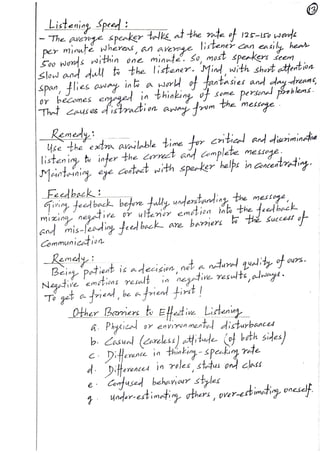 12
Listening Speed :
- The average speaker talks at the rate of 125-150 words
per minute whereas, an average listener can easily hear
500 words within one minute. So, most speakers seem
slow and dull to the listener. Mind, with short attention
span, flies away into a world of fantasies and day-dreams,
or becomes engaged in thinking of some personal problems.
That causes distraction away from the message.
Remedy:
Use the extra available time for critical and discriminative
listening to infer the correct and complete message.
Maintaining eye contact with speaker helps in concentrating.
Feedback :
Giving feedback before fully understanding the message,
mixing negative or ulterior emotion into the feedback
and mis-leading feedback are barriers to the success of
Communication.
Remedy :
Being patient is a decision, not a natural quality of ours.
Negative emotions result in negative results, always.
To get a friend, be a friend first !
Other Barriers to Effective Listening
a. Physical or environmental disturbances
b. Casual (careless) attitude (of both sides)
c. Difference in thinking - speaking rate
d. Differences in roles, status and class
e. Confused behaviour styles
g. under-estimating others, over-estimating oneself.